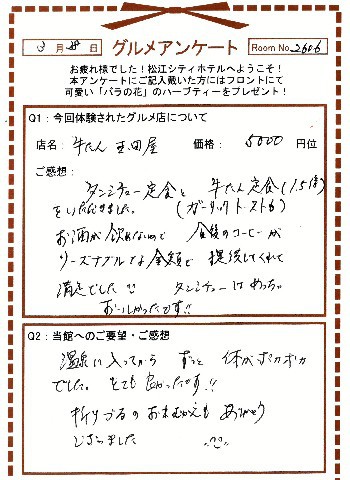 3月28日 グルメアンケート Room No.2606
お疲れ様でした！松江シティホテルへようこそ！
本アンケートにご記入戴いた方にはフロントにて
可愛い「バラの花」のハーブティーをプレゼント！
Q1：今回体験されたグルメ店について
店名： 牛たん 玉田屋 価格： 5000 円位
ご感想：
タンシチュー定食と 牛たん定食(1.5倍)
をいただきました。 (ガーリックトーストも)
お酒が飲れないので 食後のコーヒーが
リーズナブルな金額で 提供してくれて
満足でした タンシチューはめっちゃ
おいしかったです!!
Q2：当館へのご要望・ご感想
温泉に入ってから ずっと 体がポカポカ
でした。とても良かったです!!
折りづるのお出むかえも ありがとう
ございました ^^